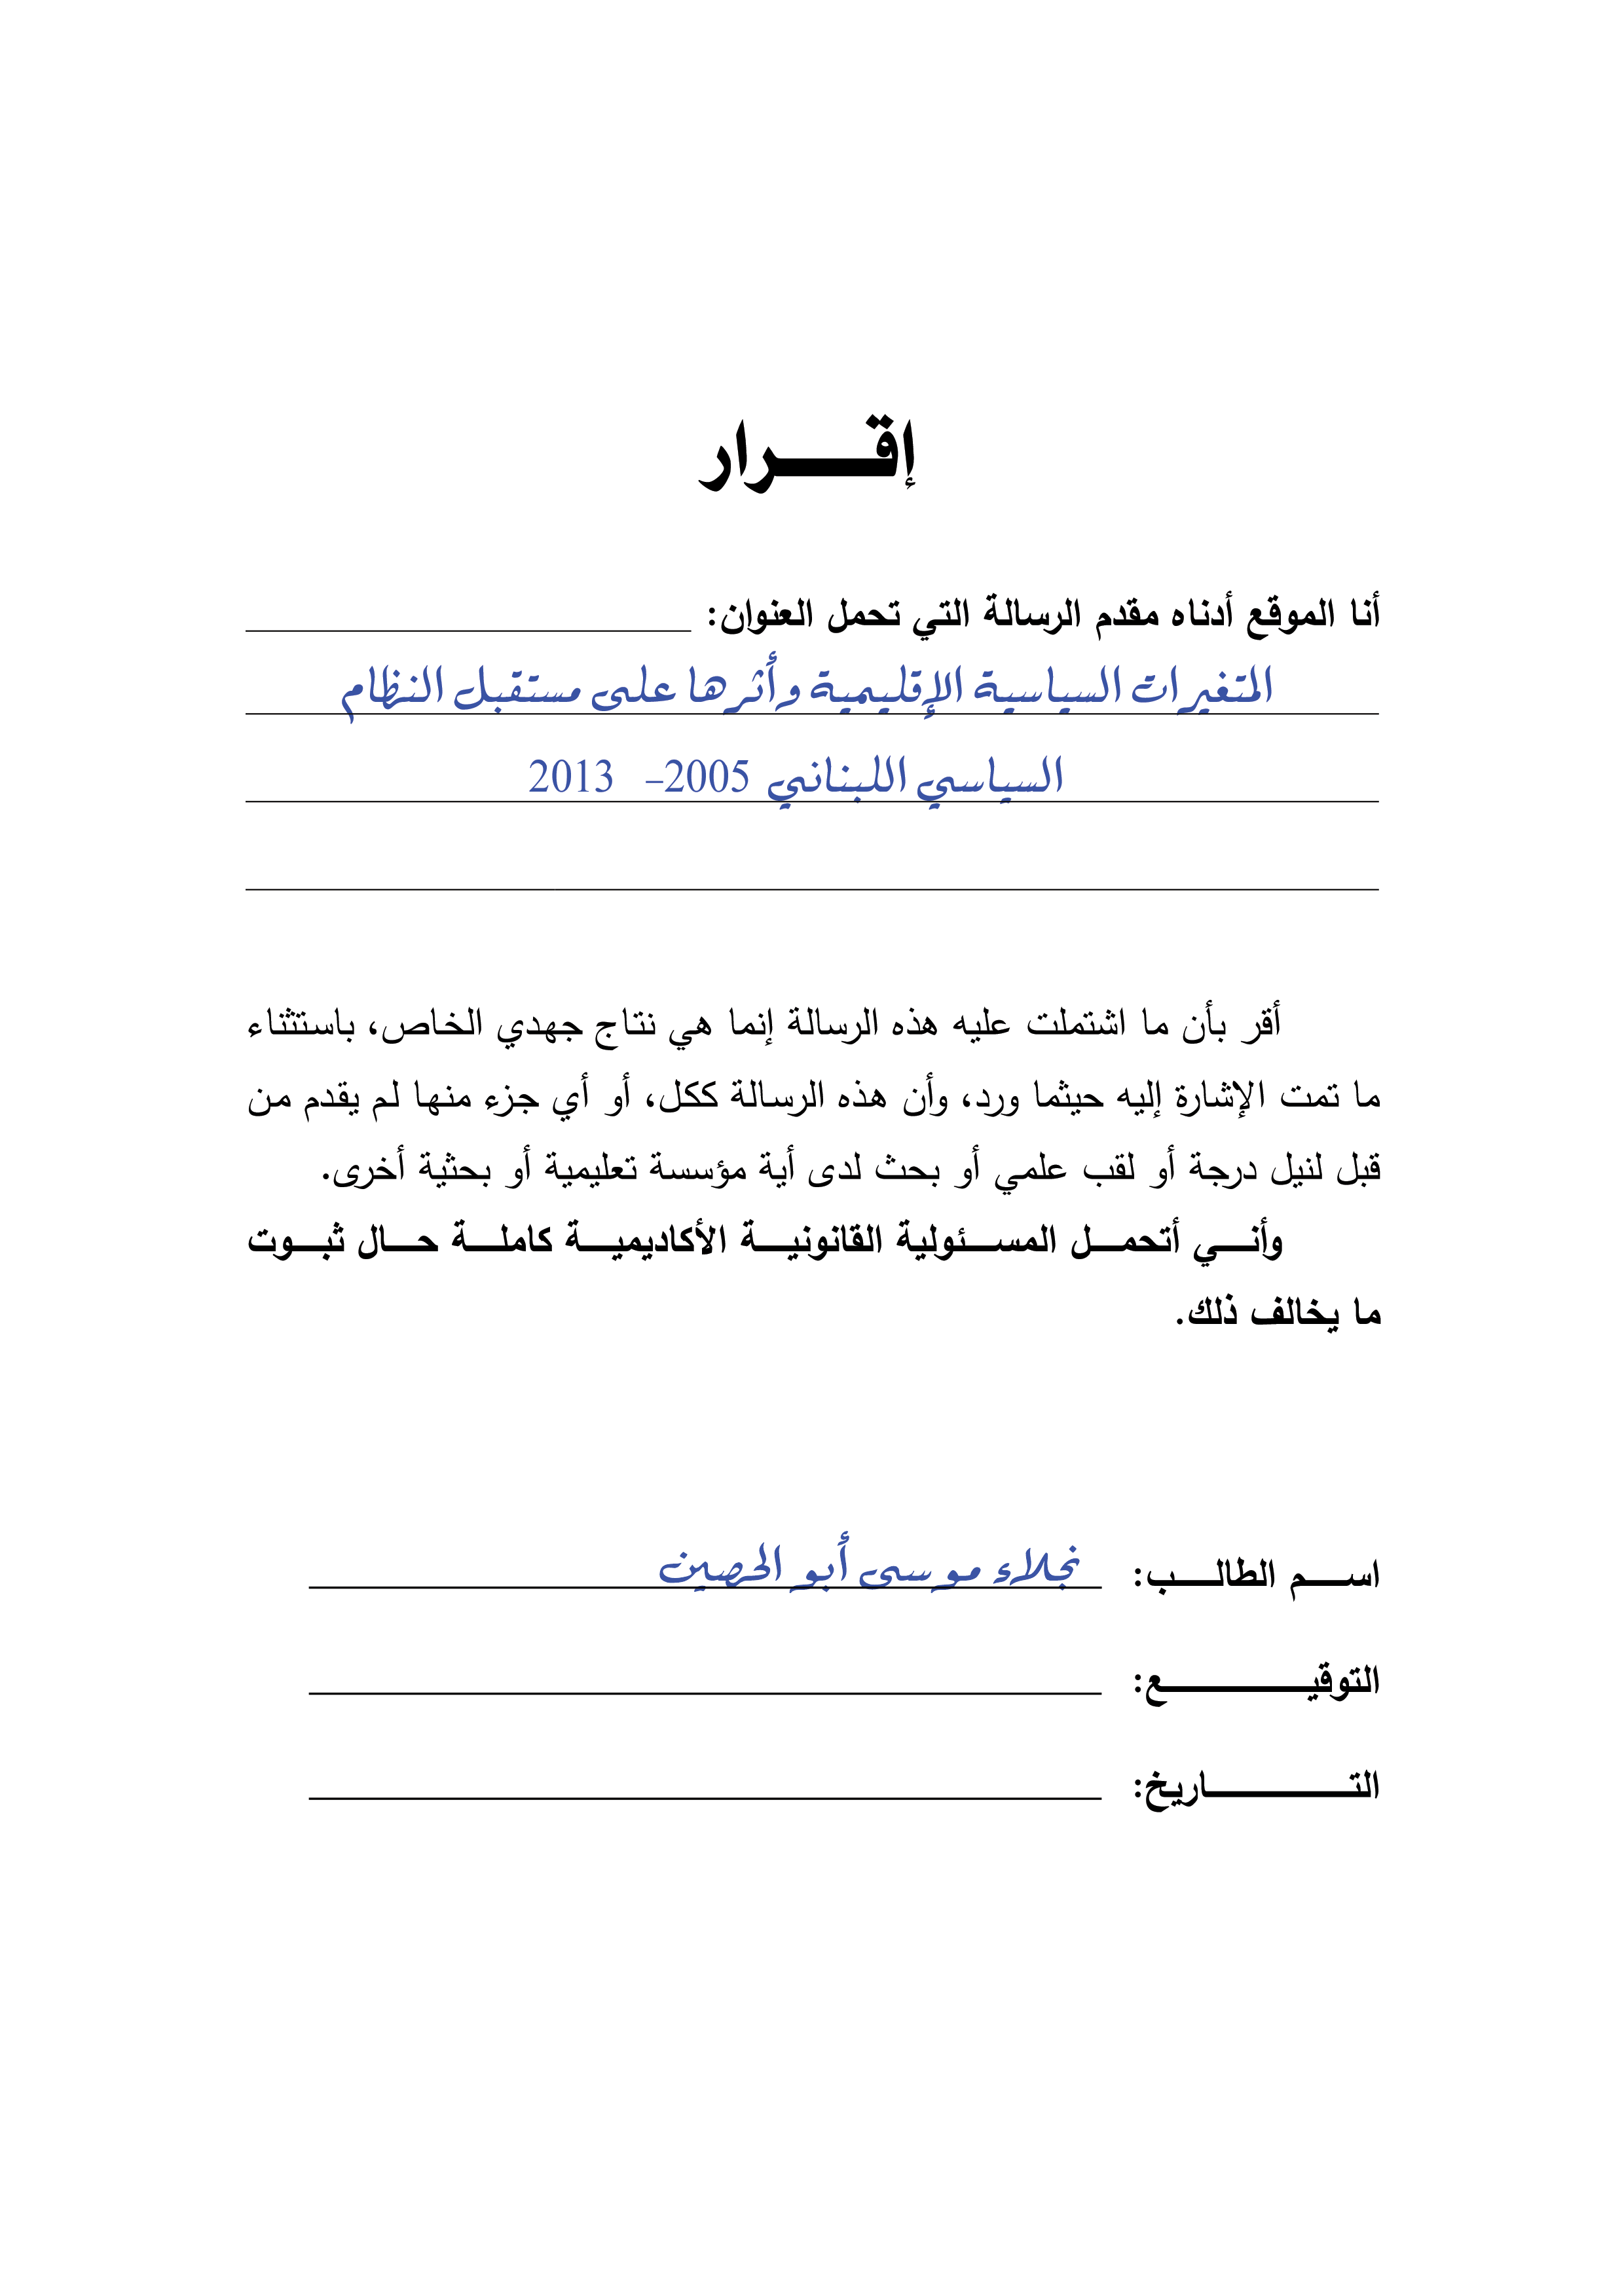 إقــــرار
أنا الموقع أدناه مقدم الرسالة التي تحمل العنوان:
المتغيرات السياسية الإقليمية وأثرها على مستقبل النظام
السياسي اللبناني 2005– 2013
أقر بأن ما اشتملت عليه هذه الرسالة إنما هي نتاج جهدي الخاص، باستثناء
ما تمت الإشارة إليه حيثما ورد، وأن هذه الرسالة ككل، أو أي جزء منها لم يقدم من
قبل لنيل درجة أو لقب علمي أو بحث لدى أية مؤسسة تعليمية أو بحثية أخرى.
وأنــي أتحمــل المســئولية القانونيــة الأكاديميــة كاملــة حــال ثبــوت
ما يخالف ذلك.
اســـم الطالـــب: نجلاء موسى أبو الحصين
التوقيـــــــــع:
التـــــــــاريخ: